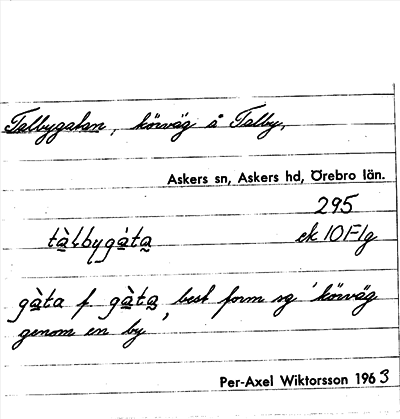 Talbygatan, körväg å Talby,
Askers sn, Askers hd, Örebro län.
295
tàlbygáta ek 10F1g
gàta f. gàta, best form sg 'körväg
genom en by'
Per-Axel Wiktorsson 1963